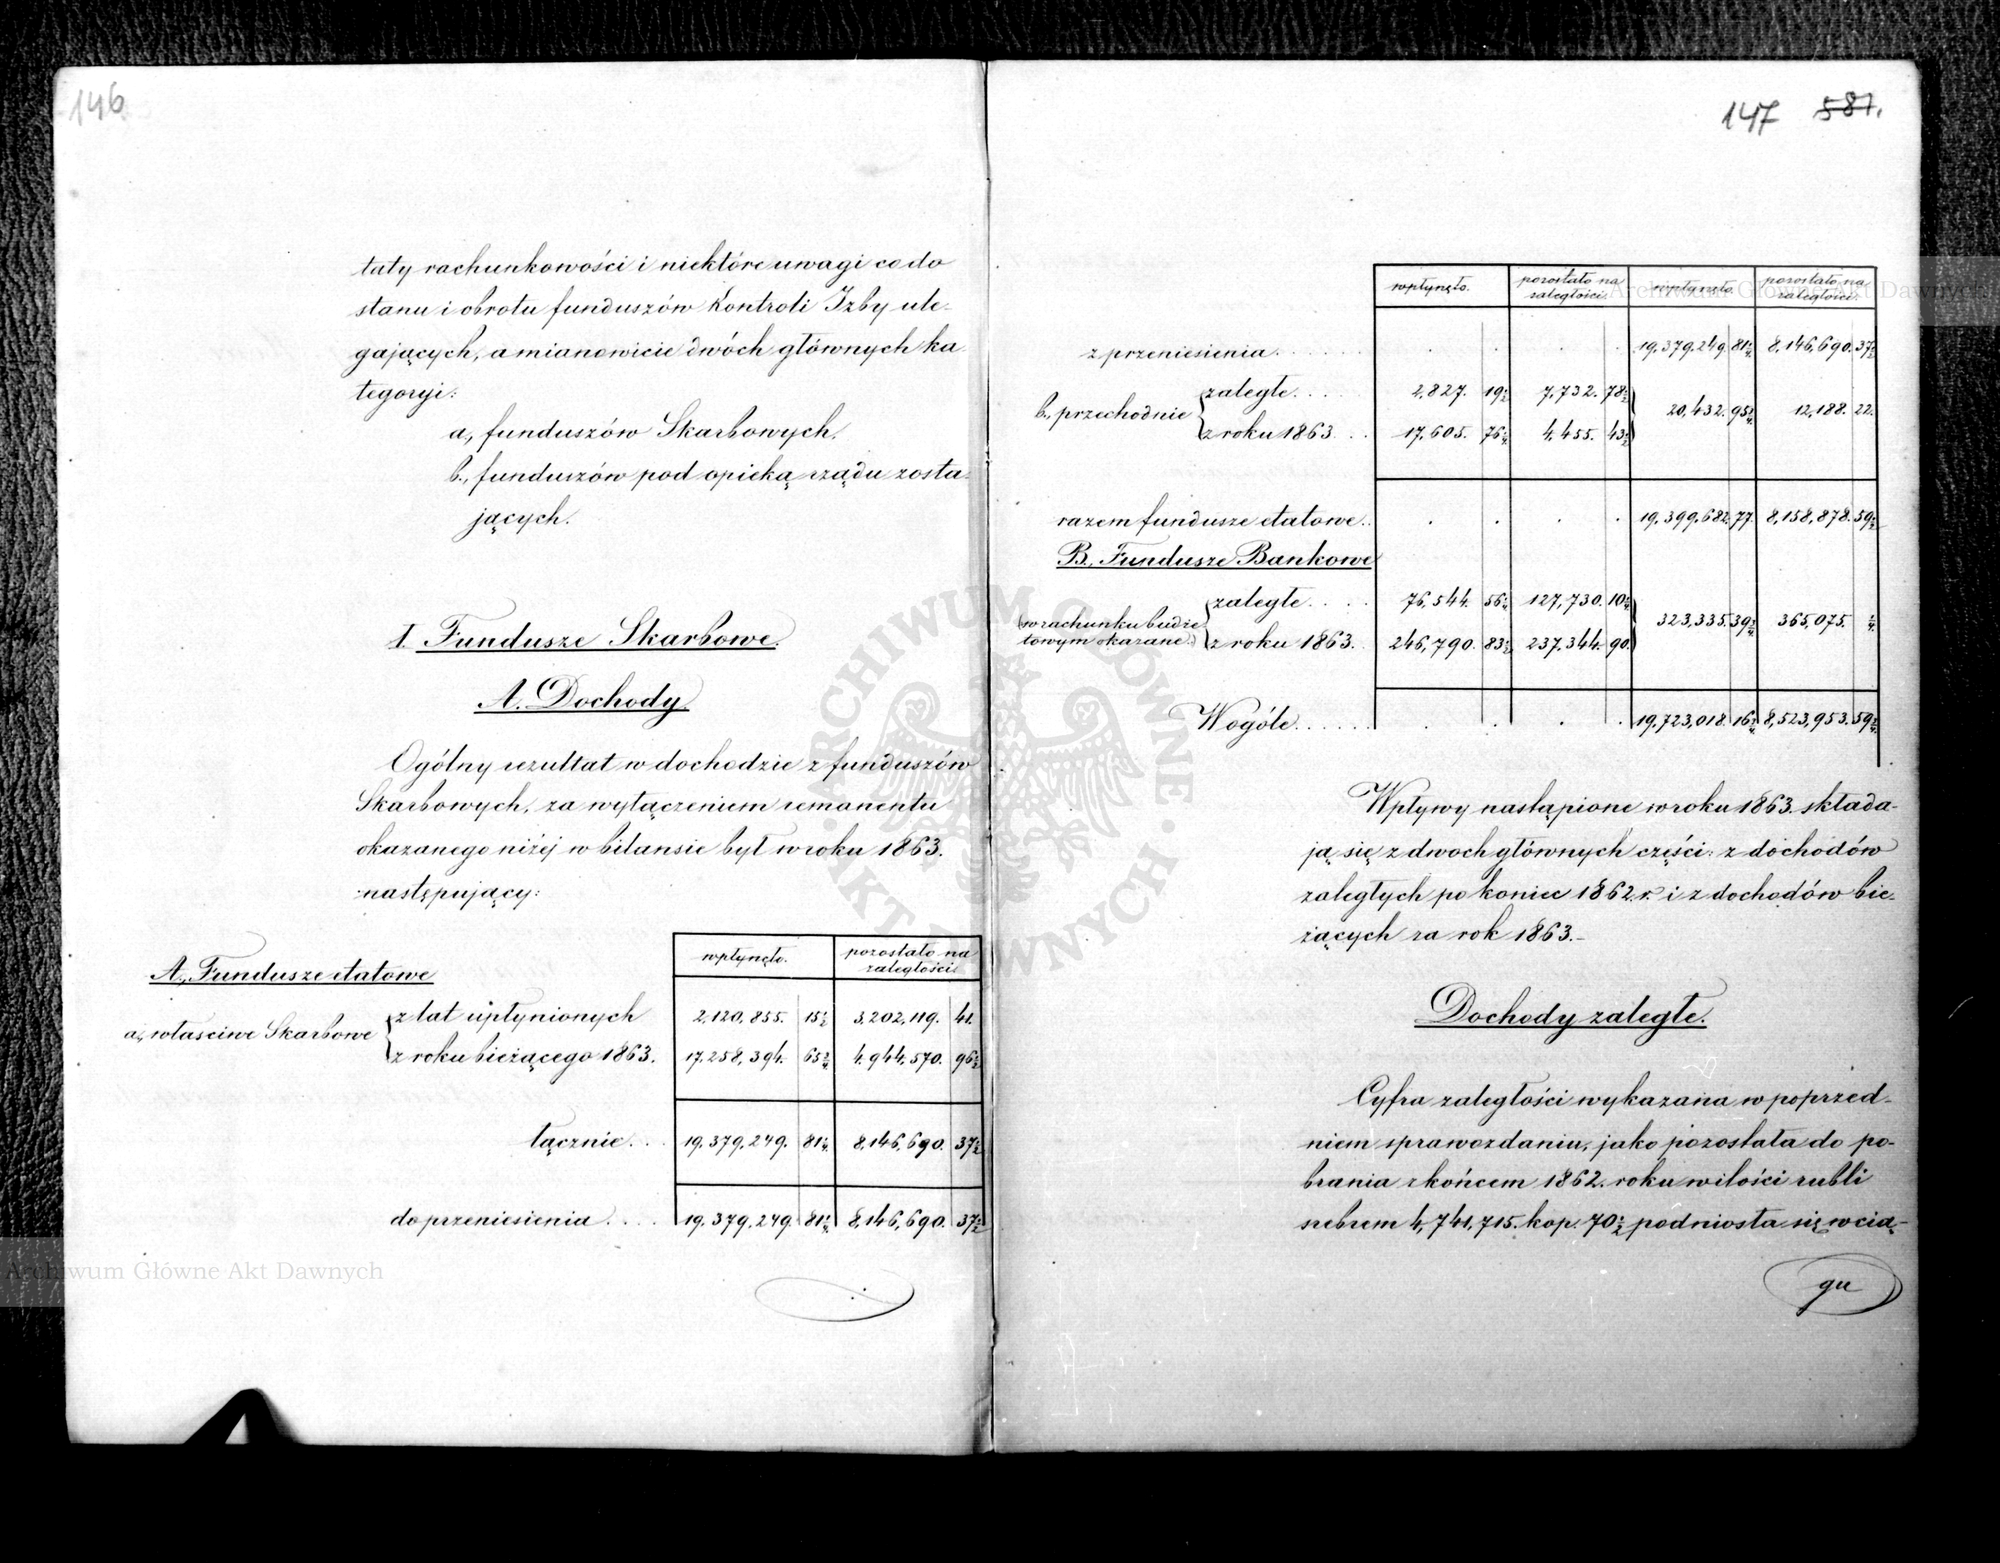 146
taty rachunkowości i niektóre uwagi co do
stanu i obrotu funduszów Kontroli Izby ule-
gających, a mianowicie dwóch głównych ka
tegoryi:
a, funduszów Skarbowych.
b., funduszów pod opieką rządu zosta-
jących.
I. Fundusze Skarbowe.
A. Dochody.
Ogólny rezultat w dochodzie z funduszów
Skarbowych, za wyłączeniem remanentu
okazanego niżéj w bilansie był w roku 1863.
następujący:
wpłynęło. pozostało na zaległości
A., Fundusze etatowe
a, właściwe Skarbowe
z lat upłynionych 2,120,855. 15½ 3,202,119. 41.
z roku bieżącego 1863. 17,258,394. 65¾ 4,944,570. 96½
łącznie... 19,379,249. 81¼ 8,146,690. 37½
do przeniesienia.... 19,379,249. 81¼ 8,146,690. 37½
147 587.
wpłynęło. pozostało na zaległości. wpłynęło. pozostało na zaległości.
z przeniesienia....... 19,379,249. 81¼ 8,146,690. 37½
b., przechodnie
zaległe..... 2,827. 19½ 7,732. 78½
20,432. 95¾ 12,188. 22.
z roku 1863... 17,605. 76¼ 4,455. 43½
razem fundusze etatowe.. 19,399,682. 77. 8,158,878. 59½
B., Fundusze Bankowe
(w rachunku budże
towym okazane.)
zaległe..... 76,544. 56¼ 127,730. 10¼
323,335. 39¾ 365,075. ¼.
z roku 1863.. 246,790. 83½ 237,344. 90.
Wogóle...... 19,723,018. 16¾ 8,523,953. 59¾
Wpływy nastąpione w roku 1863. składa-
ją się z dwoch głównych części: z dochodów
zaległych po koniec 1862. r. i z dochodów bie-
żących za rok 1863.-
Dochody zaległe.
Cyfra zaległości wykazana w poprzed-
niem sprawozdaniu, jako pozostała do po-
brania z końcem 1862. roku w ilości rubli
srebrem 4,741,715. kop. 70½ podniosła się w cią-
gu
Archiwum Główne Akt Dawnych
Archiwum Główne Akt Dawnych
ARCHIWUM GŁÓWNE · AKT DAWNYCH ·